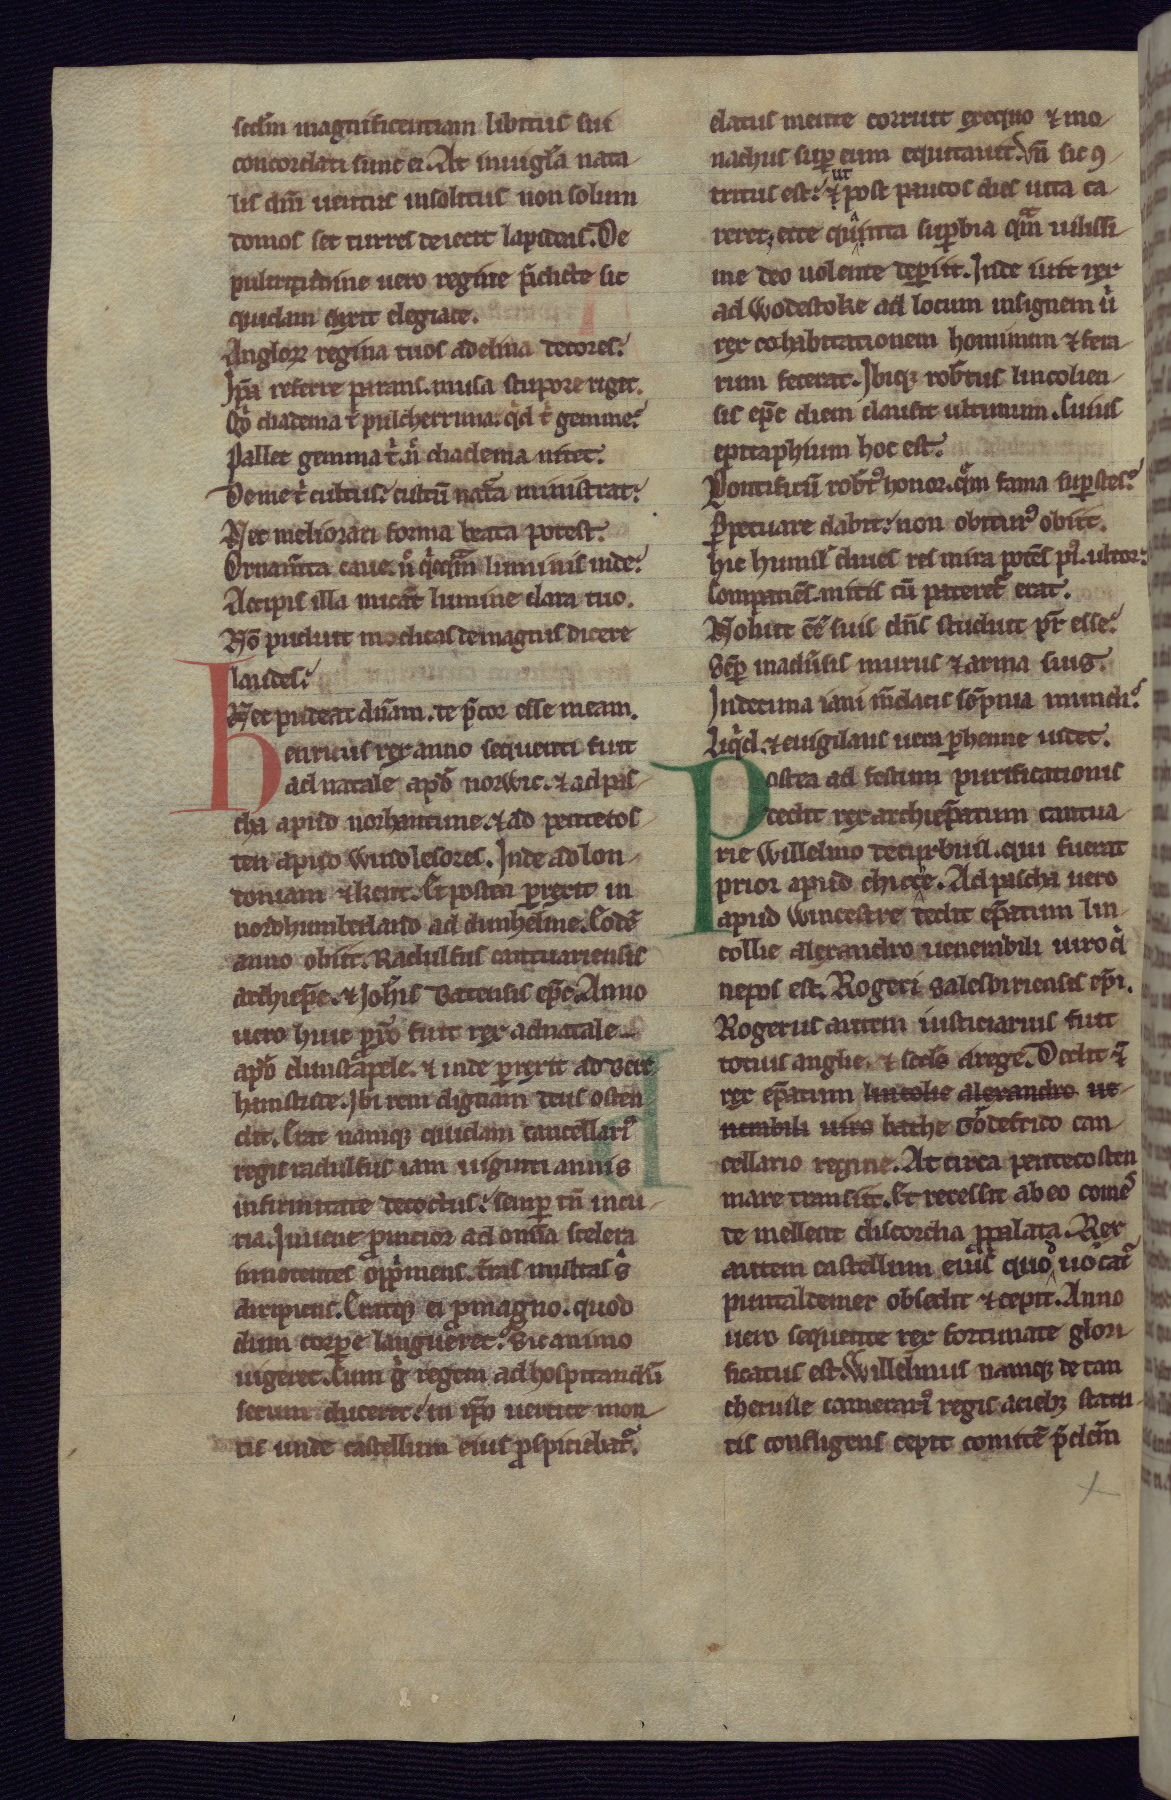 sectm̄ magnificentiam libitus sui
concordati sunt ei. At in uigl̄a nata-
lis dn̄i uentus insolitus non solum
domos set turres deiecit lapideas. De
pulcritudine uero regine p̄dicte sic
quidam dixit elegiace.
Angloꝝ regina tuos adelina decores.
Ip̄a referre parans. musa stupore riget.
Qͥd diadema tͥ pulcherrima. qͥd tͥ gemme.
Pallet gemma tͥ. nͨ diadema nitet.
Deme tͥ cultus. cultū nat̄a ministrat.
Nec meliorari forma beata potest.
Ornam̄ta caue. nͨ qͥcqͣm luminis inde.
Accipis illa micāt lumine clara tuo.
Nō puduit modicas de magnis dicere
laudes.
Nec pudeat dn̄am. te p̄cor esse meam.
Henricus rex anno sequenti fuit
ad natale apđ norwic. & ad pas-
cha apud norhantune. & ad pentecos
ten apud windlesores. Inde ad lon-
doniam & kent. Et postea perrexit in
nordhumberland ad dunhelme. Eodē
anno obiit. Radulfus cantuariensis
archiep̄c. & Joh̄is batensis ep̄c. Anno
uero huic px̄o fuit rex ad natale
apđ dunstaple. & inde perrexit ad berc
hamstude. Ibi rem dignam deus osten
dit. Erat namqꝫ quidam cancellariꝰ
regis radulfus iam uiginti annis
infirmitate decoctus. semp tn̄ in cu-
ria. Iuuene pronior ad om̄ia scelera
innocentes opp̄mens. t̄ras multas sͥ
diripiens. Eratqꝫ ei p magno. quod
dum corpore langueret. sic animo
uigeret. Cum gͦ regem ad hospitandū
secum duceret. in ip̄o uertice mon-
tis unde castellum eius ꝓspiciebat᷑.
elatus mente corruit ex equo & mo-
nachus super eum equitauit. Vn̄ sic ꝯ-
tritus est. & ut post paucos dies uita ca-
reret, ecce quāta superbia qͣm uilissi-
me deo uolente deperiit. Inde iuit rex
ad wodestoke ad locum insignem uͥ
rex cohabitationem hominum & fera-
rum fecerat. Ibiqꝫ rob̄tus lincolien-
sis ep̄c diem clausit ultimum. Cuius
epitaphium hoc est.
Pontificū rob̄tꝰ honor. qͤm fama sup̄stes.
Perpetuare dabit. non obiturꝰ obiit.
Hic humil̄ diues res mira potēs pͥ. ultor.
Compatiēs. mitis cū pateret᷑ erat.
Noluit eē suis dn̄s studuit pr̄ esse.
Semp in adūsis murus & arma suis.
In decima iani m̄dacis sōpnia mundi.
Liqͥd. & euigilans uera perhenne uidet.
Postea ad festum purificationis
dedit rex archiep̄atum cantua-
rie Willelmo de curbuil. qui fuerat
prior apud chicce. Ad pascha uero
apud wincestre dedit ep̄atum lin-
collie alexandro uenerabili uiro qͥ
nepos est. Rogeri salesbiriensis ep̄i.
Rogerus autem iusticiarius fuit
totius anglie. & secđs a rege. Dedit &̄
rex ep̄atum lincolie alexandro ue-
nerabili uiro bathe Godefrido can-
cellario regine. At circa pentecosten
mare transiit. Et recessit ab eo comes
de mellent discordia ꝓpalata. Rex
autem castellum eius quod uocat᷑
puntaldemer obsedit & cepit. Anno
uero sequente rex fortunate glori-
ficatus est. Willelmus namqꝫ de tan
cheruile camerariꝰ regis aciebꝫ statu-
tis confligens cepit comitē p̄dcm̄